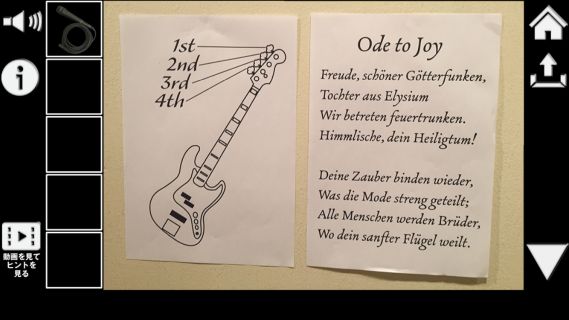 1st
2nd
3rd
4th
Ode to Joy
Freude, schöner Götterfunken,
Tochter aus Elysium
Wir betreten feuertrunken.
Himmlische, dein Heiligtum!
Deine Zauber binden wieder,
Was die Mode streng geteilt;
Alle Menschen werden Brüder,
Wo dein sanfter Flügel weilt.
動画を見て
ヒントを
見る